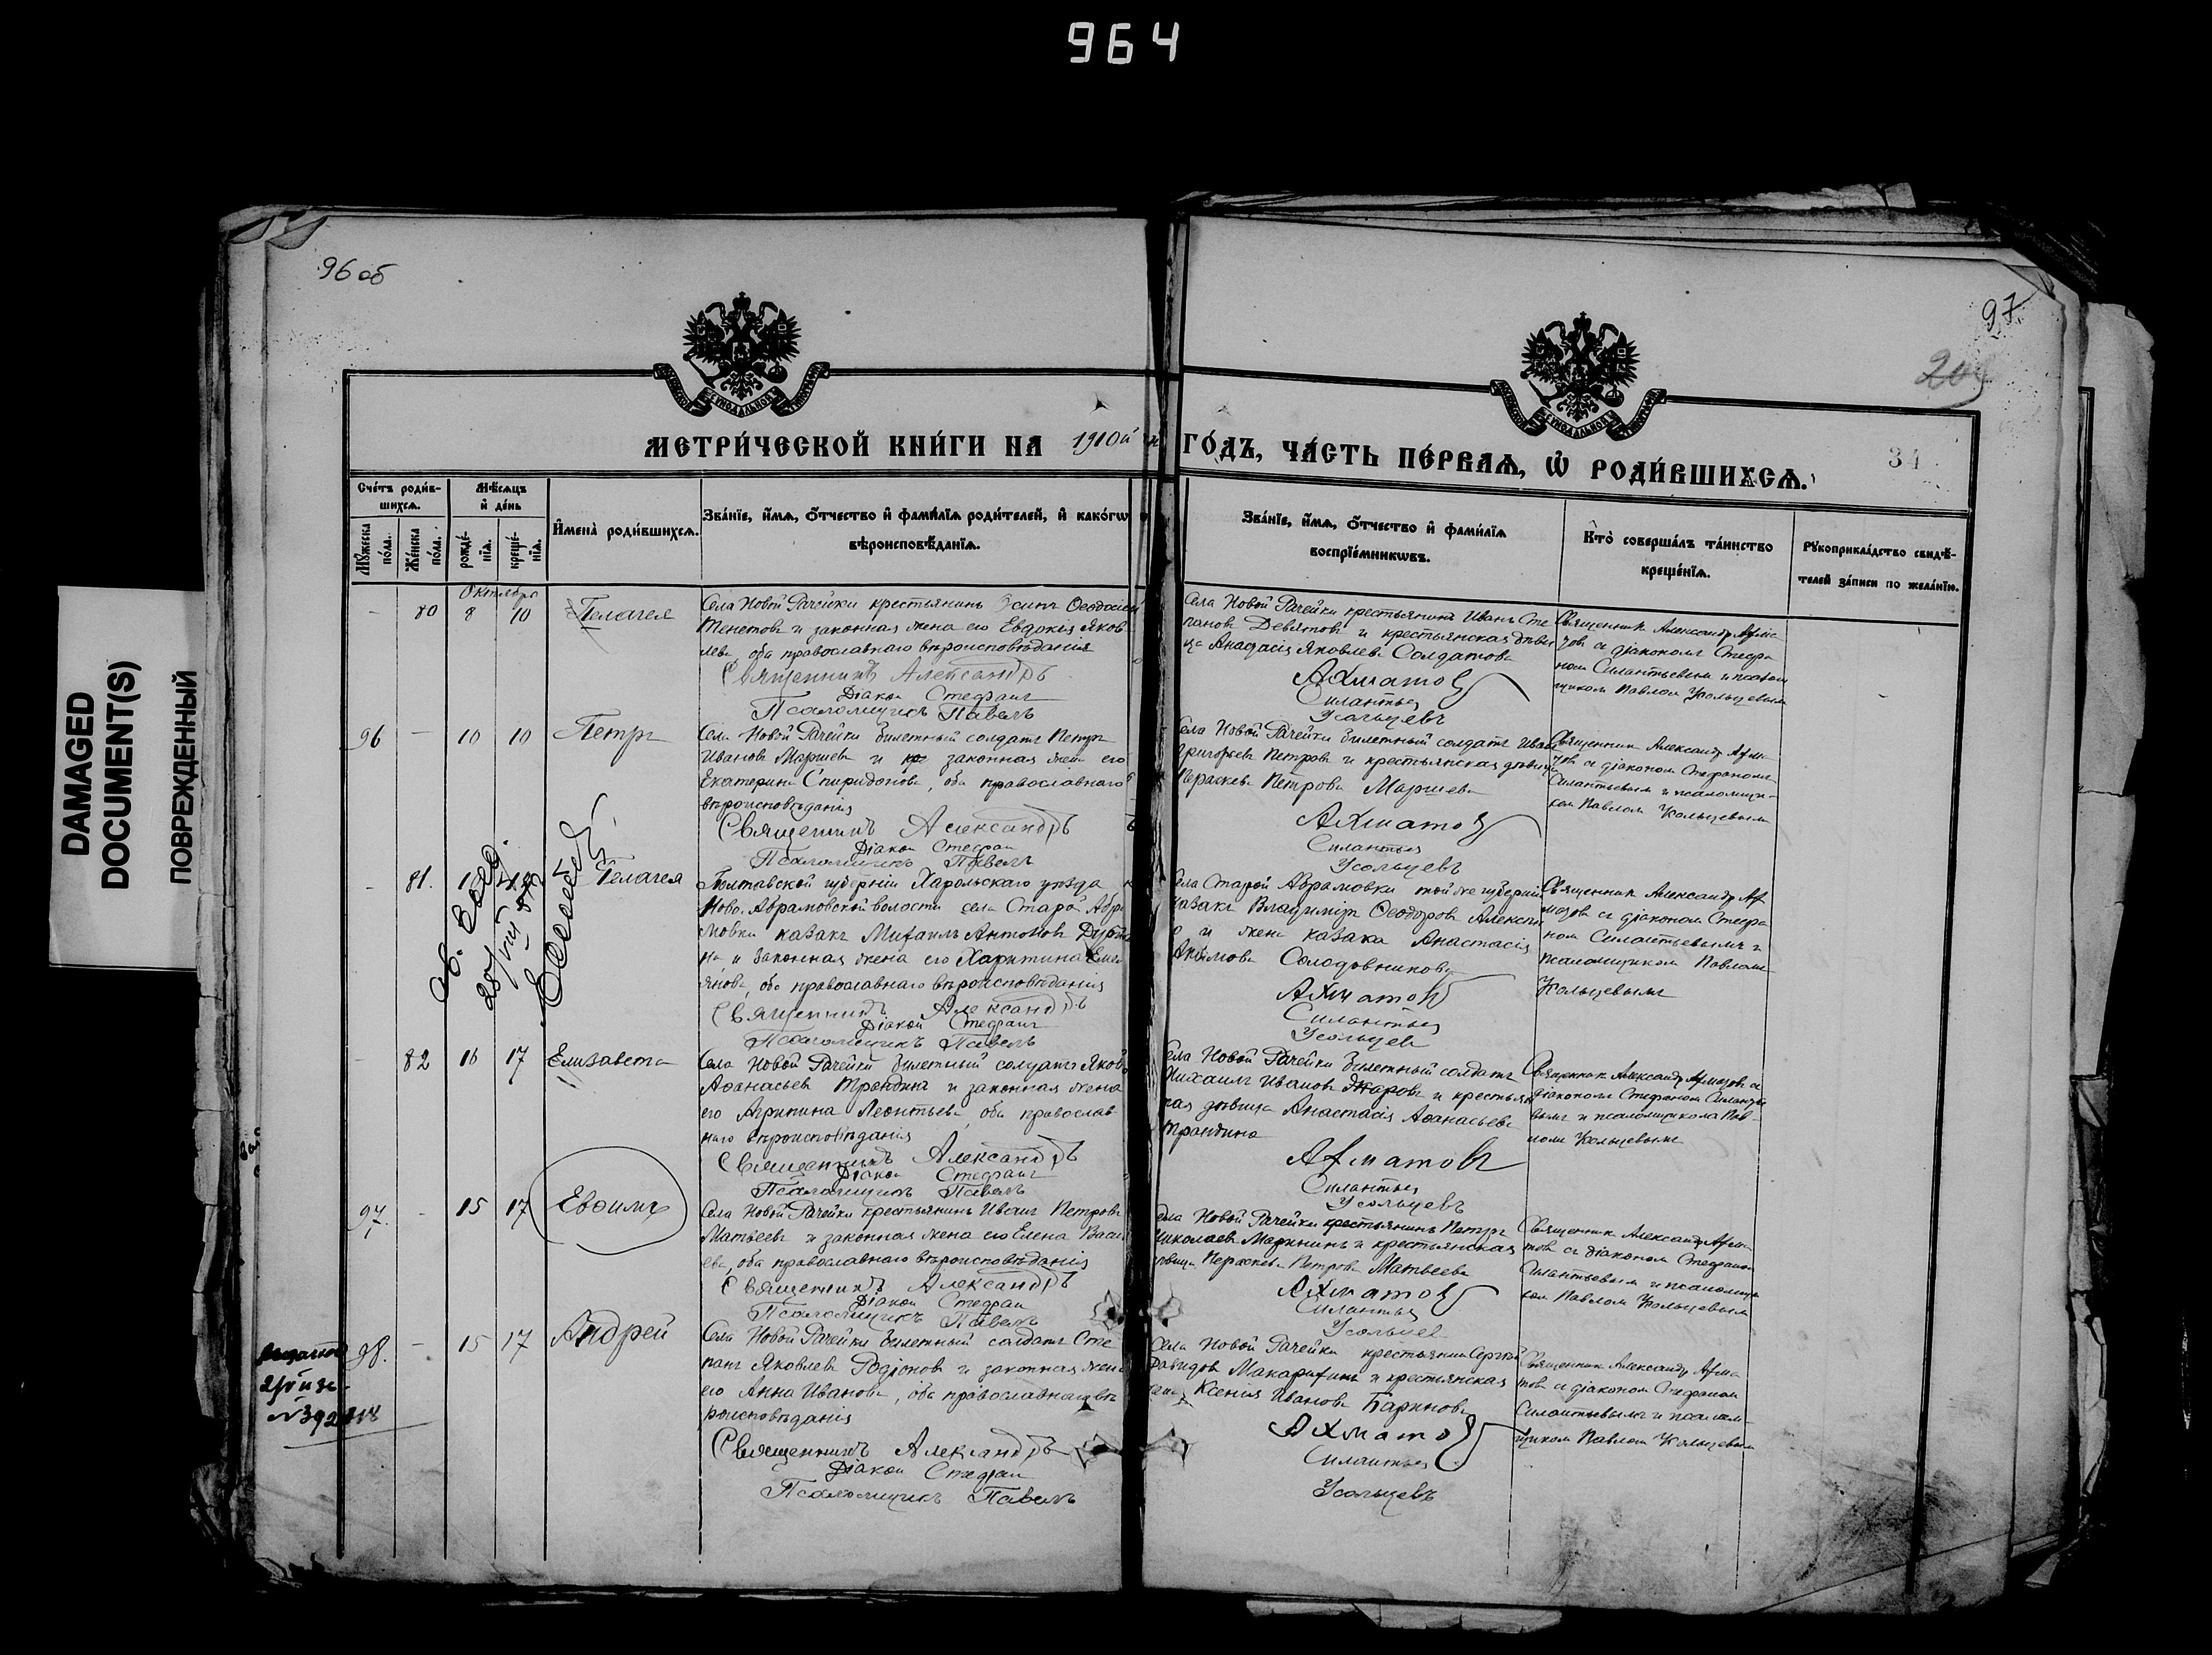 964
DAMAGED
DOCUMENT(S)
ПОВРЕЖДЕННЫЙ
96 об
97
204
34
МЕТРИ́ЧЕСКОЙ КНИ́ГИ НА 1910й ГО́ДЪ, ЧА́СТЬ ПЕ́РВАѦ, Ѡ҆ РОДИ́ВШИХСѦ.
Сче́тъ роди́в-
шихсѧ.
Мѣ́сѧцъ
и҆ де́нь
Мꙋ́жеска по́ла.
Же́нска по́ла.
рожде́-
нїѧ.
креще́-
нїѧ.
И҆мена̀ роди́вшихсѧ.
Зва́нїе, и҆́мѧ, ѻ҆́тчество и҆ фами́лїѧ роди́телей, и҆ како́гѡ
вѣроисповѣ́данїѧ.
Зва́нїе, и҆́мѧ, ѻ҆́тчество и҆ фами́лїѧ
воспрїе́мникѡвъ.
Кто̀ соверша́лъ та́инство
креще́нїѧ.
Рꙋкоприкла́дство свидѣ́-
телей за́писи по жела́нїю.
Октября
- 80 8 10 Пелагея
Села Новой Рачейки крестьянинъ Осипъ Ѳеодосіев
Тенетовъ и законная жена его Евдокія Яков
лева, оба православнаго вѣроисповѣданія
Священникъ Александръ
Діакон Стефанъ
Псаломщикъ Павелъ
Села Новой Рачейки крестьянинъ Иванъ Сте
пановъ Девятовъ и крестьянская дѣви
ца Анастасія Яковлева Солдатова
Ахматов
Силантьев
Усольцевъ
Священник Александръ Ахма
товъ съ діакономъ Стефа
номъ Силантьевым и псалом
щиком Павлом Усольцевым
96 - 10 10 Петръ
Села Новой Рачейки билетный солдатъ Петръ
Иванов Маршев и законная жена его
Екатерина Спиридонова, оба православнаго
вѣроисповѣданія
Священникъ Александръ
Діакон Стефан
Псаломщикъ Павелъ
Села Новой Рачейки билетный солдатъ Иван
Григорьев Петров и крестьянская дѣвица
Параскева Петрова Маршева
Ахматов
Силантьев
Усольцевъ
Священник Александр Ахма
тов съ діаконом Стефаномъ
Силантьевым и псаломщи-
ком Павлом Усольцевым
- 81. Пелагея
Полтавской губерніи Харольскаго уѣзда
Ново-Аврамовской волости села Старой Авра
мовки казакъ Михаилъ Антонов
и законная жена его Харитина Емел
янова, оба православнаго вѣроисповѣданія
Священникъ Александръ
Діакон Стефанъ
Псаломщикъ Павелъ
Села Старой Аврамовки той же губерніи
казакъ Владиміръ Ѳеодоровъ Алексѣе
в и жена казака Анастасія
Акимова Солодовникова
Ахматов
Силантьев
Усольцев
Священник Александр Ах
матовъ съ діаконом Стефа
ном Силантьевымъ и
псаломщиком Павлом
Усольцевымъ
- 82 16 17 Елизавета
Села Новой Рачейки билетный солдатъ Яков
Аѳанасьев Трандинъ и законная жена
его Агрипина Леонтьева, оба православ
наго вѣроисповѣданія
Священникъ Александръ
Діакон Стефанъ
Псаломщикъ Павелъ
Села Новой Рачейки билетный солдатъ
Михаилъ Иванов и крестьянс
кая дѣвица Анастасія Аѳанасьева
Трандина
Ахматовъ
Силантьев
Усольцевъ
Священник Александр Ахматовъ съ
діакономъ Стефаном Силантье
вымъ и псаломщиком Пав-
лом Усольцевым
97. - 15 17 Евѳимъ
Села Новой Рачейки крестьянинъ Иванъ Петровъ
Матвеевъ и законная жена его Елена Васи
ева, оба православнаго вѣроисповѣданія
Священникъ Александръ
Діакон Стефан
Псаломщикъ Павелъ
Села Новой Рачейки крестьянинъ Петръ
Николаев Маринин и крестьянская
дѣвица Параскева Петрова Матвеева
Ахматов
Силантьев
Усольцев
Священник Александр Ахма
товъ съ діаконом Стефаном
Силантьевым и псаломщи
ком Павлом Усольцевым
98. - 15 17 Андрей
№ 392
Села Новой Рачейки билетный солдатъ Сте
панъ Яковлев Родіонов и законная жена
его Анна Иванова, оба православнаго вѣ
роисповѣданія
Священникъ Александръ
Діакон Стефан
Псаломщикъ Павелъ
Села Новой Рачейки крестьянин Сергѣй
Давидов Макарихинъ и крестьянская
Ксения Иванова Баринова
Ахматов
Силантьев
Усольцевъ
Священник Александр Ахма
товъ съ діаконом Стефаном
Силантьевымъ и псалом-
щиком Павлом Усольцевым